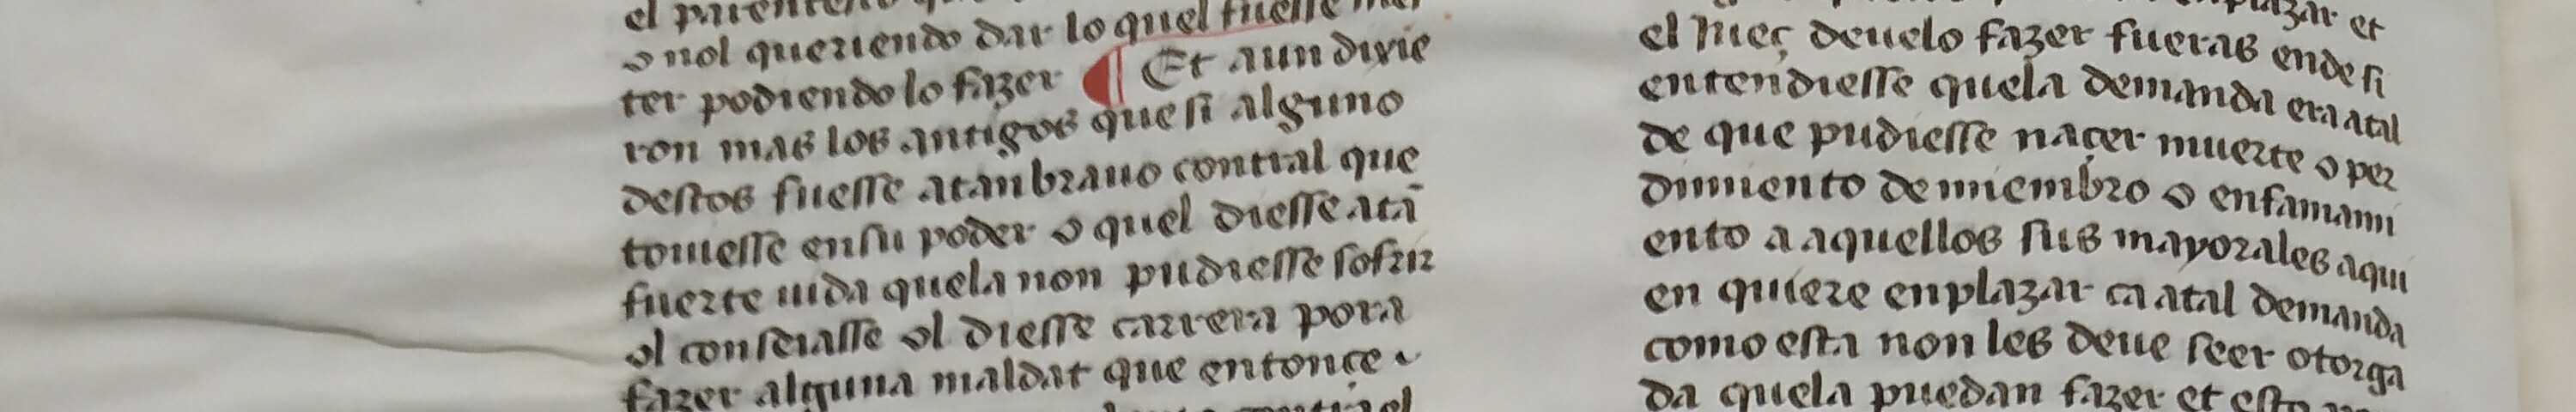 o nol queriendo dar lo quel fuesse
ter podiendo lo fazer ¶ Et aun dixie
ron mas los antigos que si alguno
destos fuesse atan brauo contral que
touiesse en su poder o quel diesse atā
fuerte uida quela non pudiesse sofrir
ol conseiasse ol diesse carrera pora
fazer alguna maldat que entonçe
et
el iuez deuelo fazer fueras ende si
entendiesse quela demanda era atal
de que pudiesse naçer muerte o per
dimiento de miembro o enfamami
ento a aquellos sus mayorales aqui
en quiere enplazar ca atal demanda
como esta non les deue seer otorga
da quela puedan fazer et esto